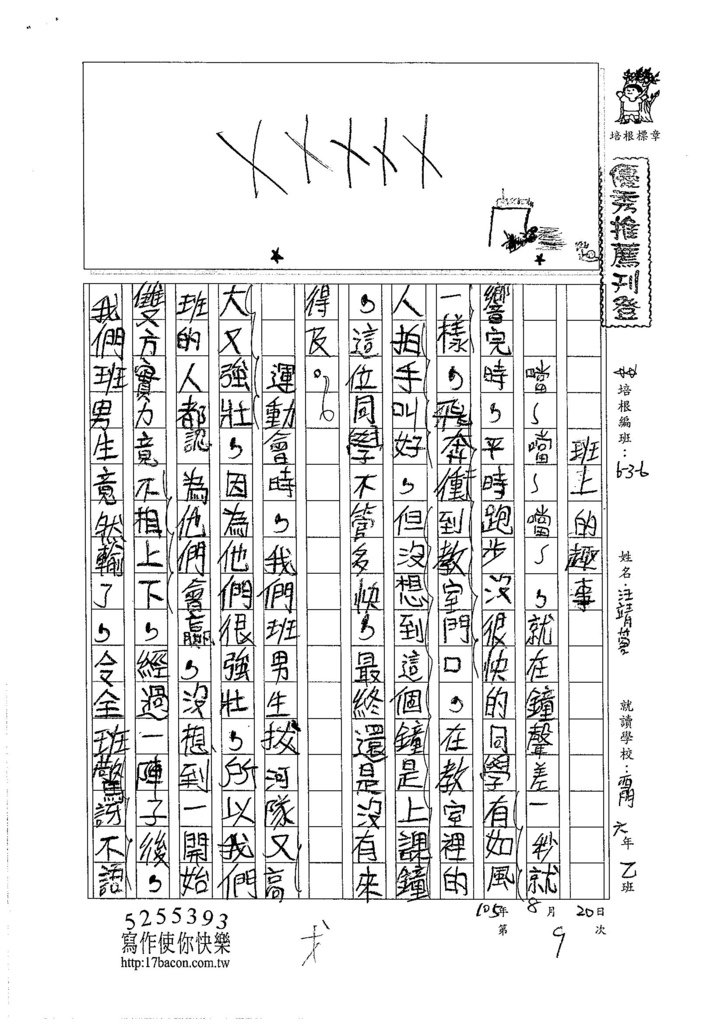 培根標章
優秀推薦刊登
培根編班：6-3-6
姓名：汪靖蕚
就讀學校：
六年乙班
105年8月20日
第9次
班上的趣事
噹～噹～噹～，就在鐘聲差一秒就
響完時，平時跑步沒很快的同學有如風
一樣，飛奔衝到教室門口。在教室裡的
人拍手叫好，但沒想到這個鐘是上課鐘
，這位同學不管多快，最終還是沒有來
得及。
運動會時，我們班男生拔河隊又高
大又強壯，因為他們很強壯，所以我們
班的人都認為他們會贏，沒想到一開始
雙方實力竟不相上下，經過一陣子後，
我們班男生竟然輸了，令全班驚訝不語
5255393
寫作使你快樂
http:17bacon.com.tw